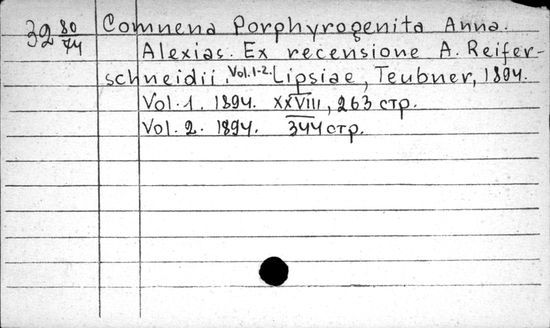 32 80/74
Comnena Porphyrogenita Anna.
Alexias. Ex recensione A. Reifer-
schneidii. Vol. 1-2. Lipsiae, Teubner, 1894.
Vol. 1. 1894. XXVIII, 263 стр.
Vol. 2. 1894. 344 стр.